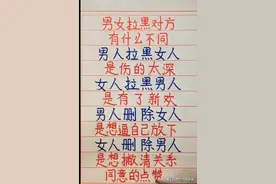 男女拉黑对方
有什么不同
男人拉黑女人
是伤的太深
女人拉黑男人
是有了新欢
男人删除女人
是想逼自己放下
女人删除男人
是想撇清关系
同意的点赞